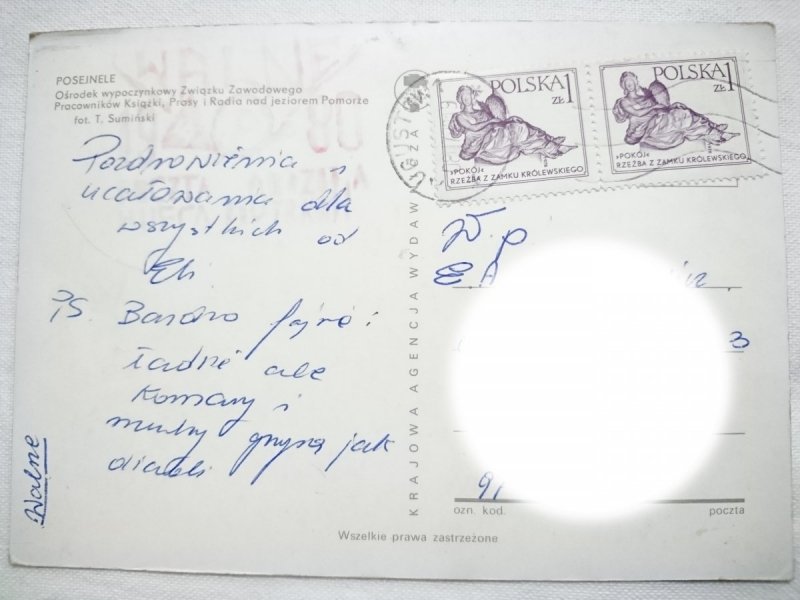 POSEJNELE
Ośrodek wypoczynkowy Związku Zawodowego
Pracowników Książki, Prasy i Radia nad jeziorem Pomorze
fot. T. Sumiński
Pozdrowienia i
ucałowania dla
wszystkich od
Eli
PS. Bardzo fajnie i
ładnie ale
komary i
muchy gryzą jak
diabli
Ważne
KRAJOWA AGENCJA WYDAWNICZA
POLSKA 1
ZŁ
»POKÓJ«
RZEŹBA Z ZAMKU KRÓLEWSKIEGO
POLSKA 1
ZŁ
»POKÓJ«
RZEŹBA Z ZAMKU KRÓLEWSKIEGO
W.p
E. A
3
9
ozn. kod.
poczta
Wszelkie prawa zastrzeżone